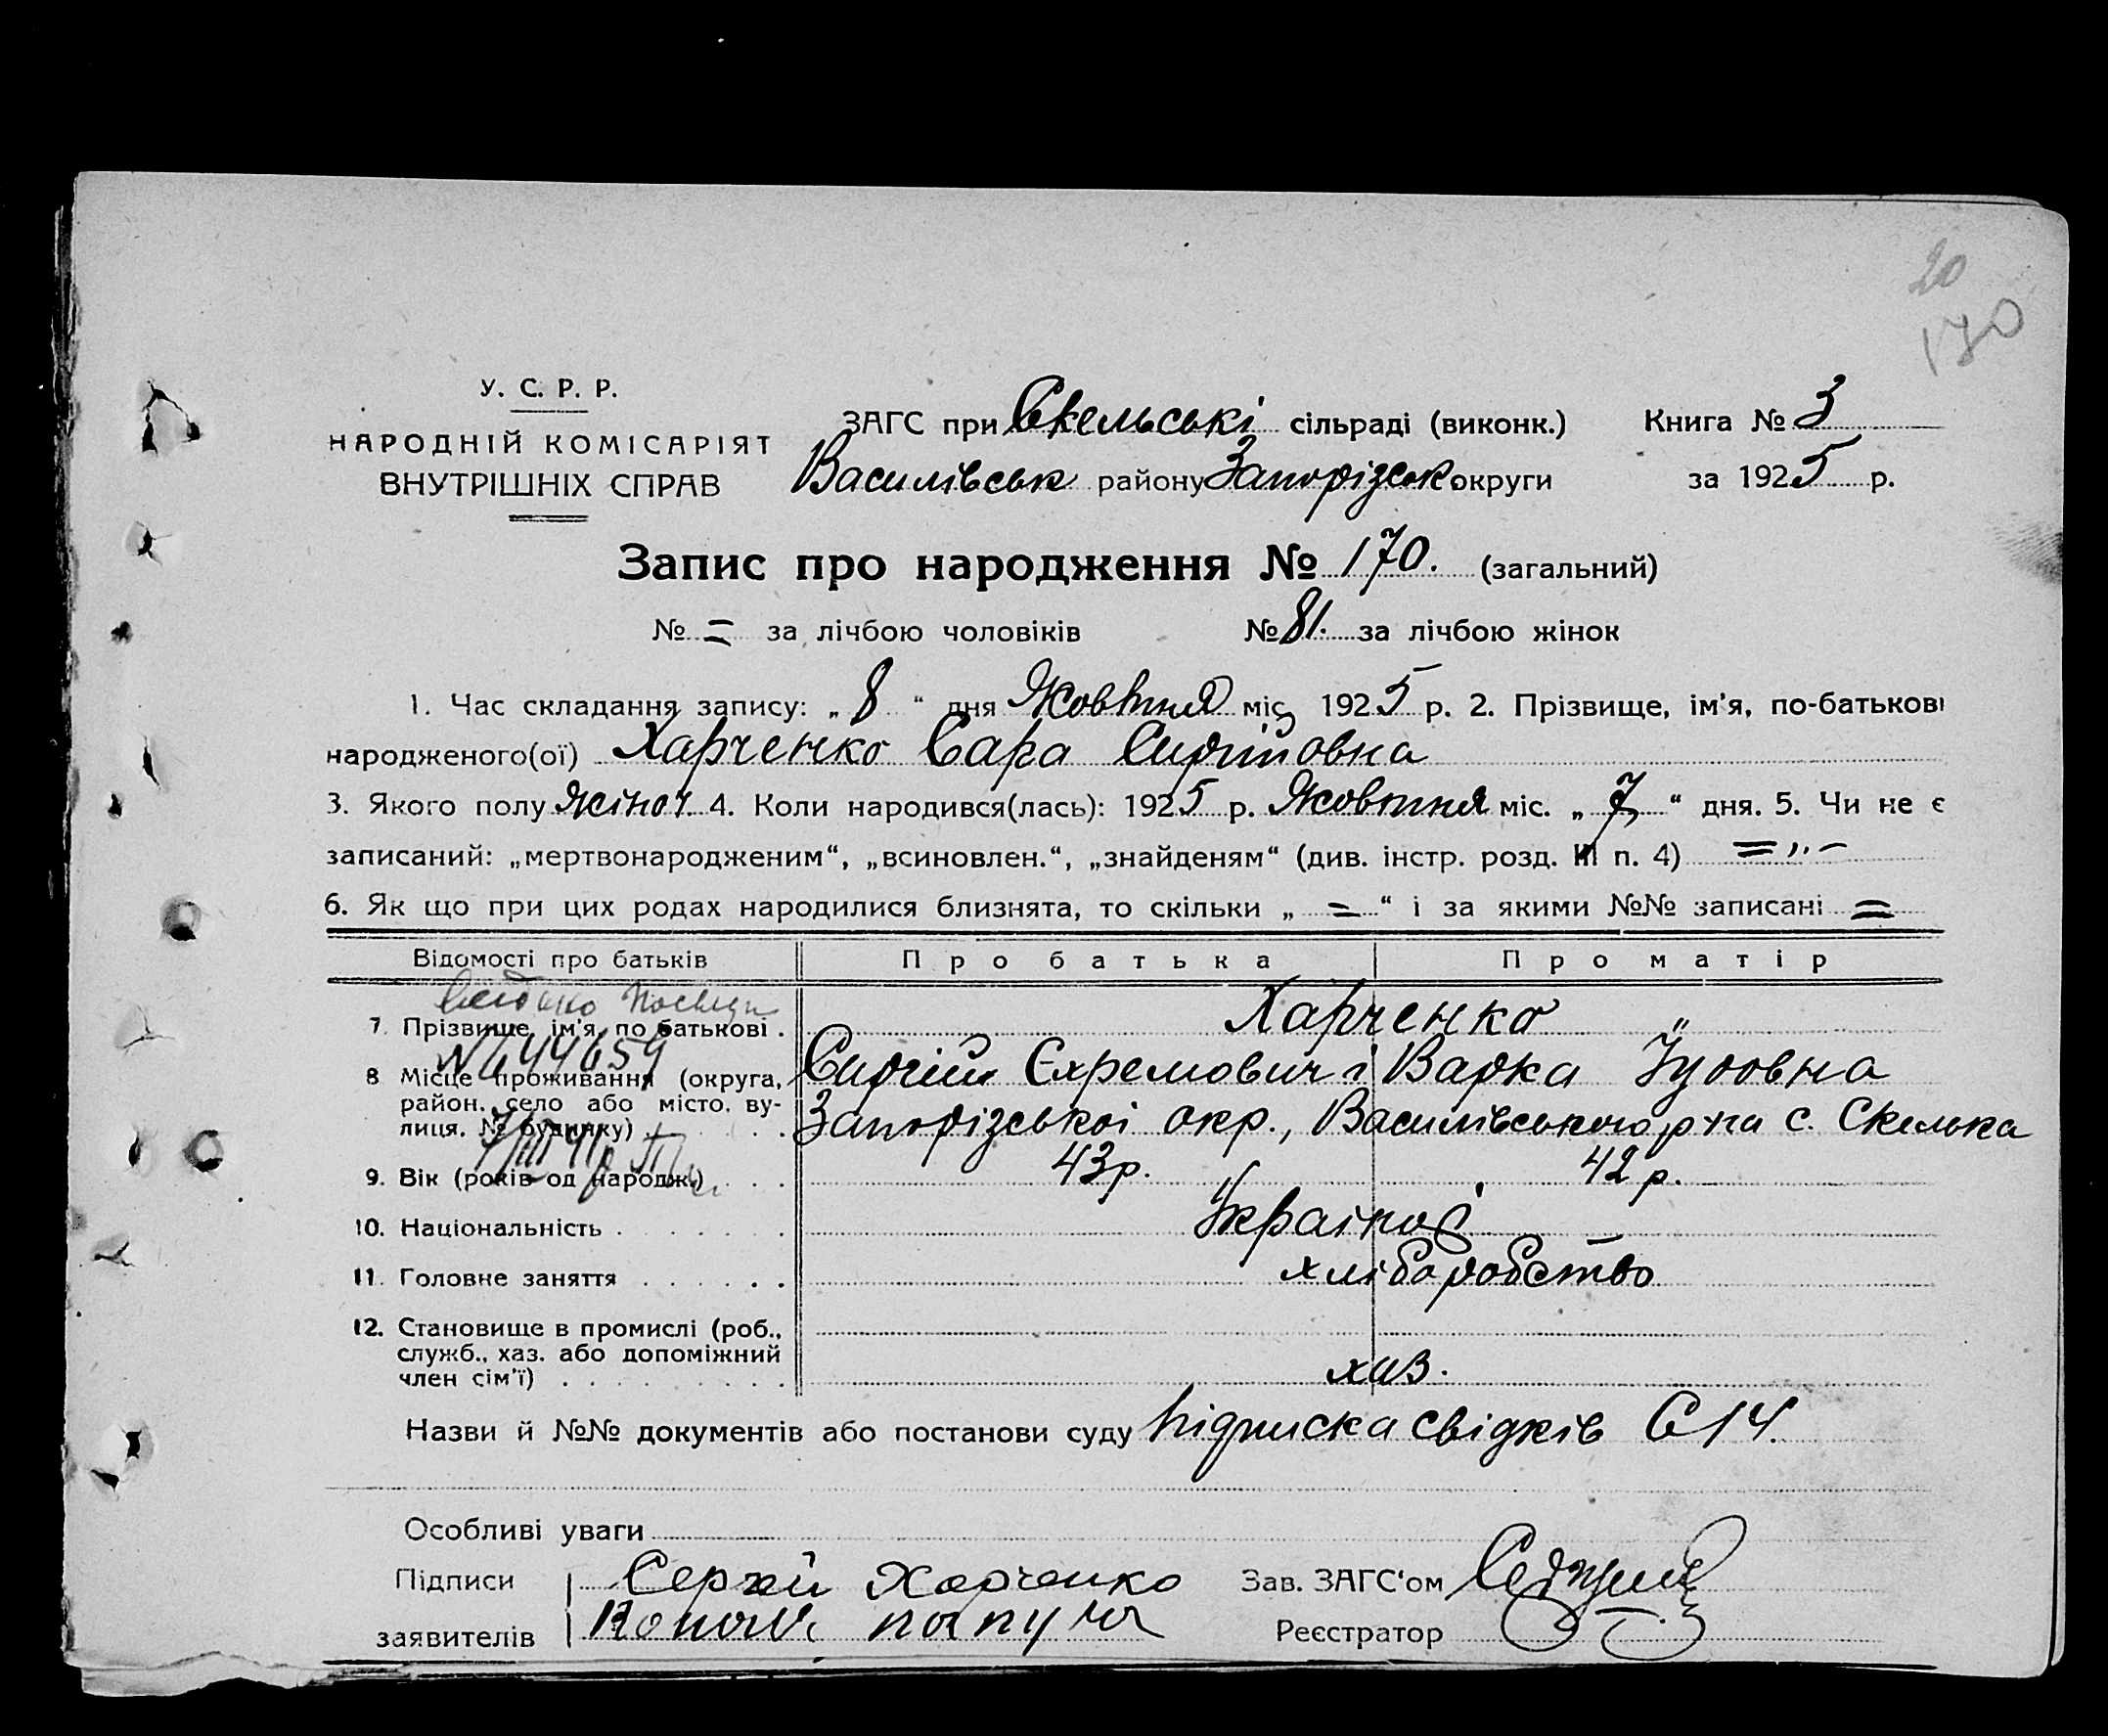 20
170
У. С. Р. Р.
НАРОДНІЙ КОМІСАРІЯТ
ВНУТРІШНІХ СПРАВ
ЗАГС при Скельські сільраді (виконк.) Книга № 3
Василівськ району Запорізськ округи за 1925 р.
Запис про народження № 170. (загальний)
№ = за лічбою чоловіків № 81. за лічбою жінок
1. Час складання запису: „ 8 “ дня Жовтня міс. 1925 р. 2. Прізвище, ім’я, по-батькові
народженого(ої) Харченко Сара Сиргіївовна
3. Якого полу жіноч. 4. Коли народився(лась): 1925 р. Жовтня міс. „ 7 “ дня. 5. Чи не є
записаний: „мертвонародженим“, „всиновлен.“, „знайденям“ (див. інстр. розд. III п. 4) = „ –
6. Як що при цих родах народилися близнята, то скільки „ = “ і за якими №№ записані =
Відомості про батьків Про батька Про матір
7. Прізвище, ім’я, по батькові . Харченко „
№ 644659
8 Місце проживання (округа, Сиргій Єхремович і Варка
район, село або місто, ву-
лиця, № будинку) . Запорізської окр., Василівського р на с. Скелька
9. Вік (років од народж.) . . . 43 р. 42 р.
10. Національність . . . . . . Україн
11. Головне заняття . . . . . . хліборобство
12. Становище в промислі (роб.,
служб., хаз. або допоміжний
член сім’ї) . . . . . . . . . хаз.
Назви й №№ документів або постанови суду підписка свідків С 14.
Особливі уваги
Підписи Сергей Харченко Зав. ЗАГС‘ом
заявителів Реєстратор